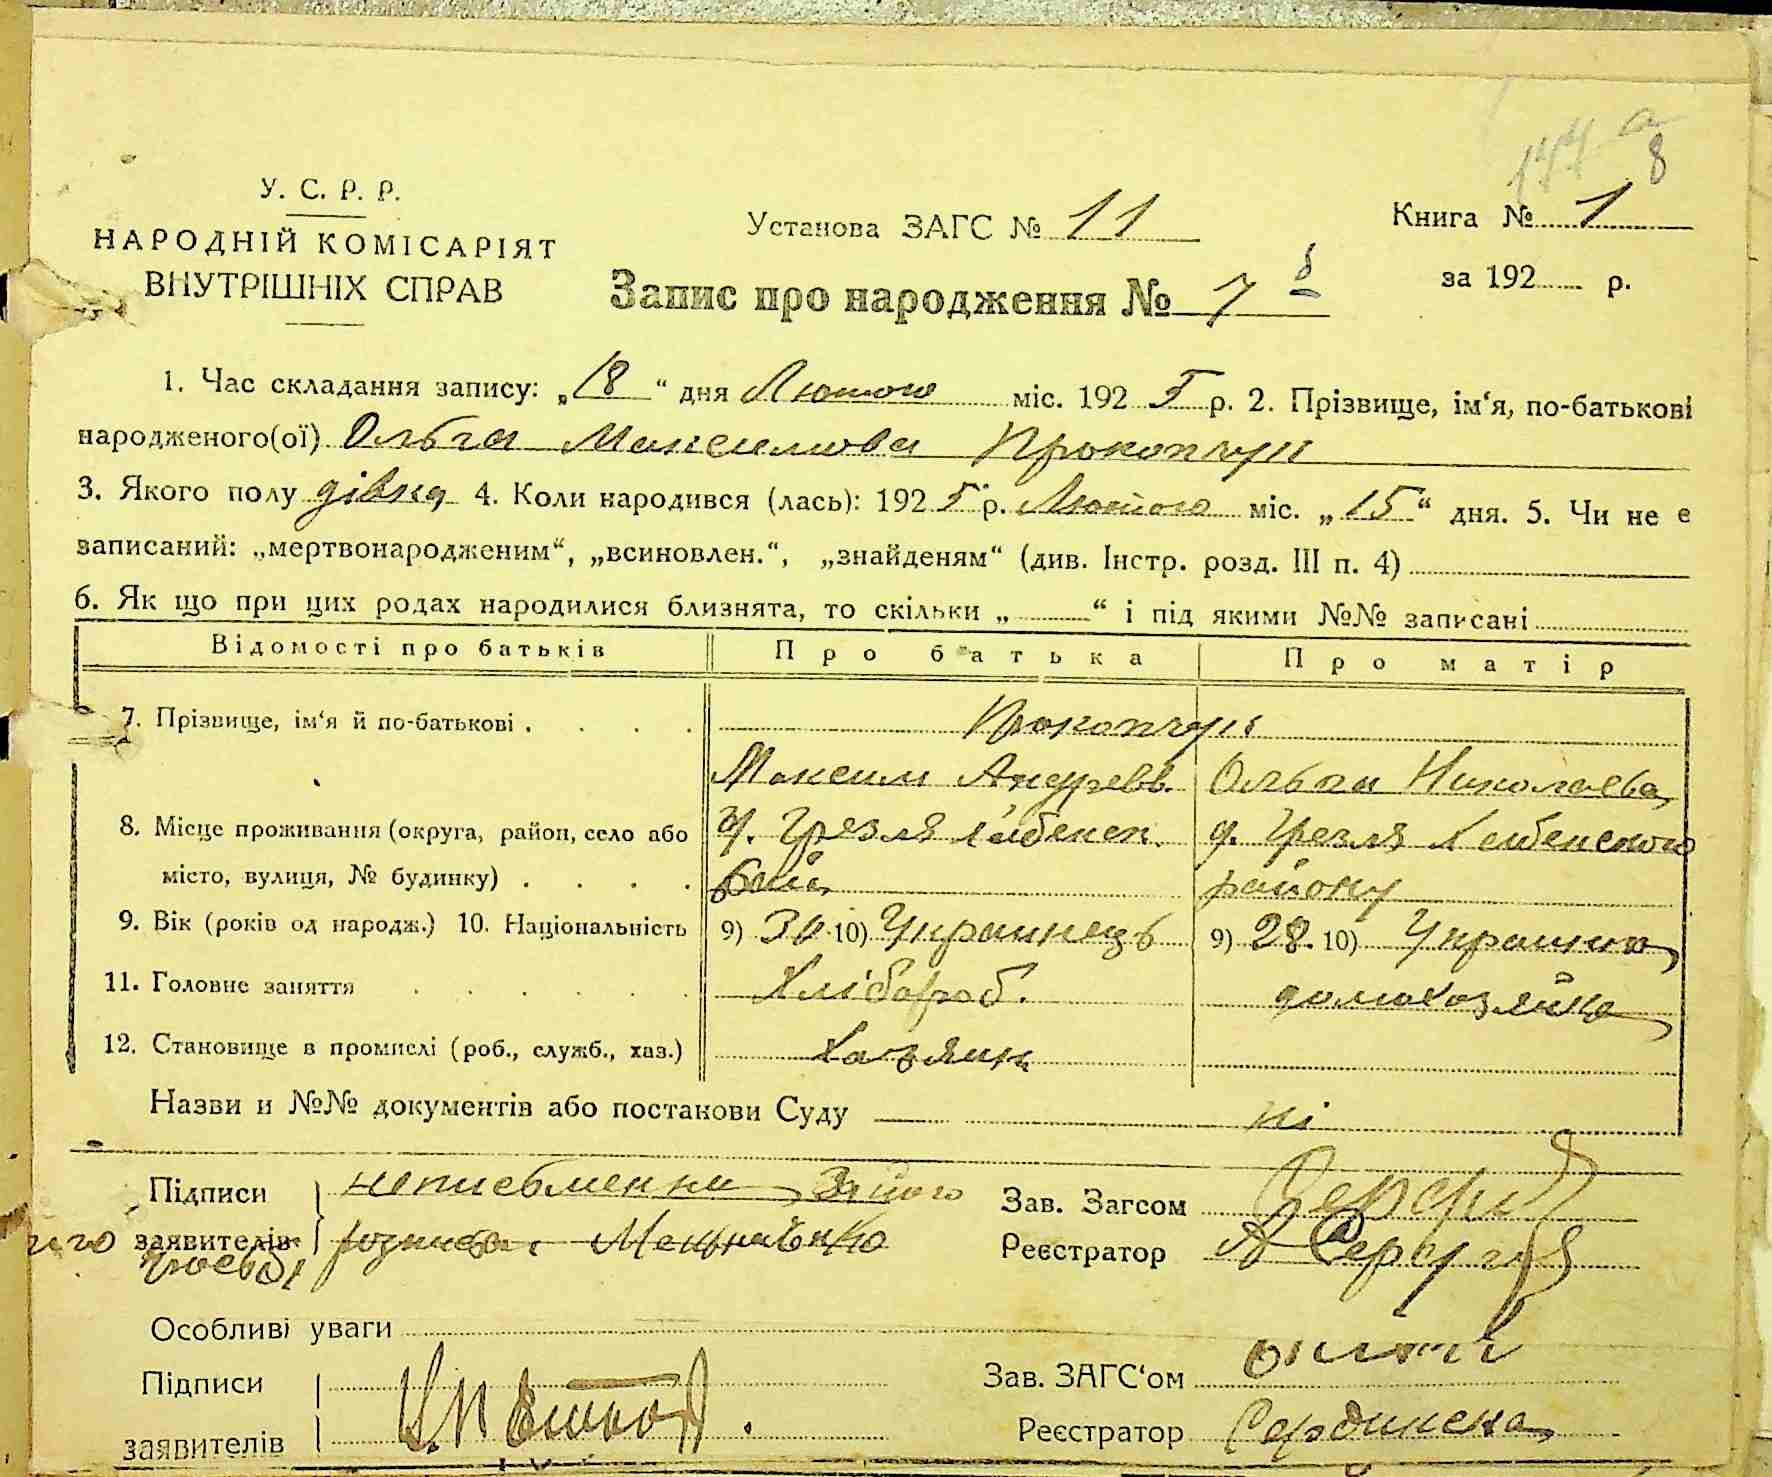 У. С. Р. Р.
НАРОДНІЙ КОМІСАРІЯТ
ВНУТРІШНІХ СПРАВ
Установа ЗАГС № 11
Книга № 1
за 192 р.
8
Запис про народження № 7 8
1. Час складання запису: „18“ дня Лютого міс. 1925 р. 2. Прізвище, ім‘я, по-батькові
народженого(ої) Ольга Максимова Прокопчук
3. Якого полу дівка 4. Коли народився (лась): 1925 р. Лютого міс. „15“ дня. 5. Чи не є
записаний: „мертвонародженим“, „всиновлен.“, „знайденям“ (див. Інстр. розд. III п. 4)
6. Як що при цих родах народилися близнята, то скільки „ “ і під якими №№ записані
Відомості про батьків Про батька Про матір
7. Прізвище, ім‘я й по-батькові . . . . Прокопчук
Максим Андреев. Ольга Николаева
8. Місце проживання (округа, район, село або Грезля д. Грезля
місто, вулиця, № будинку) . . . . району
9. Вік (років од народж.) 10. Національність 9) 30 10) Украинець 9) 28. 10) Украинка
11. Головне заняття Хлібороб. домохозяйка
12. Становище в промислі (роб., служб., хаз.) Хазяин
Назви и №№ документів або постанови Суду ні
Підписи неписьменни За його Зав. Загсом
заявителів Реєстратор
Особливі уваги
Підписи Зав. ЗАГС‘ом
заявителів Реєстратор